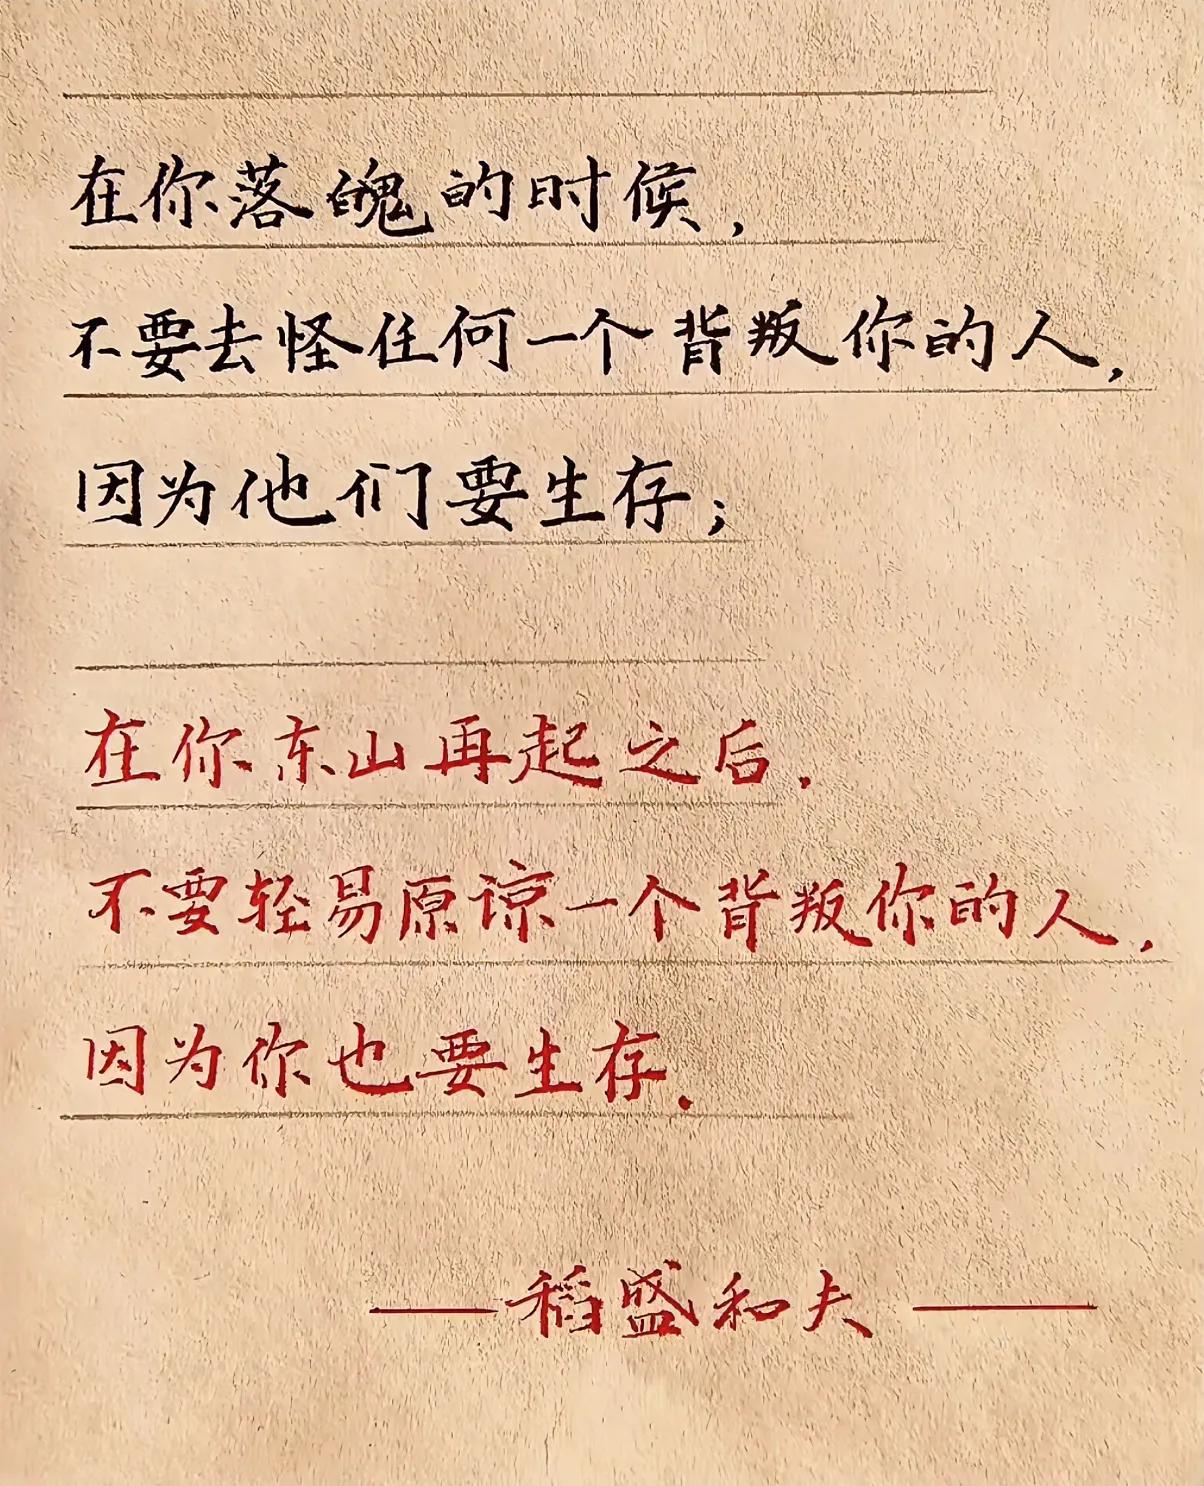 在你落魄的时候，
不要去怪任何一个背叛你的人，
因为他们要生存；
在你东山再起之后，
不要轻易原谅一个背叛你的人，
因为你也要生存.
——稻盛和夫——